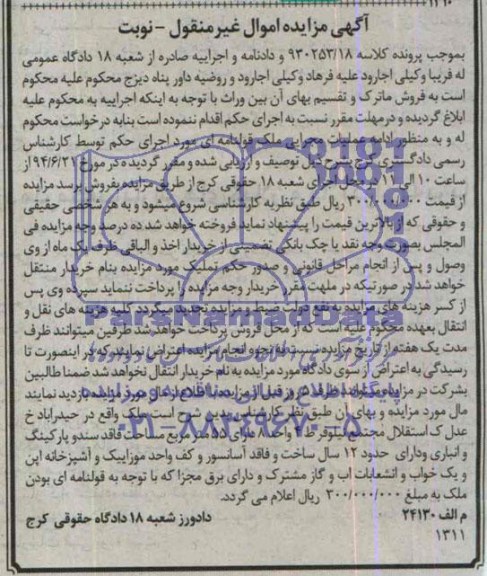 آگهی مزایده اموال غیرمنقول - نوبت
بموجب پرونده کلاسه ۹۳۰۲۵۳/۱۸ و دادنامه و اجراییه صادره از شعبه ۱۸ دادگاه عمومی
له فریبا وکیلی اجارود علیه فرهاد وکیلی اجارود و روضیه داور پناه دیزج محکوم علیه محکوم
است به فروش ماترک و تقسیم بهای آن بین وراث با توجه به اینکه اجراییه به محکوم علیه
ابلاغ گردیده و درمهلت مقرر نسبت به اجرای حکم اقدام ننموده است بنابه درخواست محکوم
له و به منظور ادامه عملیات مجرایی ملک قولنامه ای مورد اجرای حکم توسط کارشناس
رسمی دادگستری کرج بشرح ذیل توصیف و ارزیابی شده و مقرر گردیده در مورخ ۹۴/۶/۲۱ از
ساعت ۱۰ الی ۱۱ در محل اجرای شعبه ۱۸ حقوقی کرج از طریق مزایده بفروش برسد مزایده
از قیمت ۳۰۰/۰۰۰/۰۰۰ ریال طبق نظریه کارشناسی شروع میشود و به هر شخصی حقیقی
و حقوقی که از بالاترین قیمت را پیشنهاد نماید فروخته خواهد شد ده درصد وجه مزایده فی
المجلس بصورت وجه نقد یا چک بانکی تضمینی از خریدار اخذ و الباقی ظرف یک ماه از وی
وصول و پس از انجام مراحل قانونی و صدور حکم تملیک مورد مزایده بنام خریدار منتقل
خواهد شد در صورتیکه در ملهت مقرر خریدار وجه مزایده را پرداخت ننماید سپرده وی پس
از کسر هزینه های مزایده به نفع دولت ضبط و مزایده تجدید میگردد کلیه هزینه های نقل و
انتقال بعهده محکوم علیه است که از محل فروش پرداخت خواهد شد طرفین میتوانند ظرف
مدت یک هفته از تاریخ مزایده نسبت به نحوه انجام مزایده اعتراض نمایند که در اینصورت تا
رسیدگی به اعتراض از سوی دادگاه مورد مزایده به نام خریدار انتقال نخواهد شد ضمنا طالبین
بشرکت در مزایده میتوانند ظرف ۵ روز قبل از مزایده از مال مورد مزایده بازدید نمایند
مال مورد مزایده و بهای آن طبق نظر کارشناسی بدین شرح است ملک واقع در حیدراباد خ
عدل ک استقلال مجتمع نیلوفر ط ۴ واحد ۸ دارای ۵۵ متر مربع مساحت فاقد سندو پارکینگ
و انباری ودارای حدود ۱۲ سال ساخت و فاقد آسانسور و کف واحد موزاییک و آشپزخانه اپن
و یک خواب و انشعابات اب و گاز مشترک و دارای برق مجزا که با توجه به قولنامه ای بودن
ملک به مبلغ ۳۰۰/۰۰۰/۰۰۰ ریال اعلام می گردد.
م الف ۲۴۱۳۰ دادورز شعبه ۱۸ دادگاه حقوقی کرج
۱۳۱۱
ParsNamadData
پایگاه اطلاع رسانی مناقصه و مزایده
۰۲۱-۸۸۳۴۹۶۷۰-۵